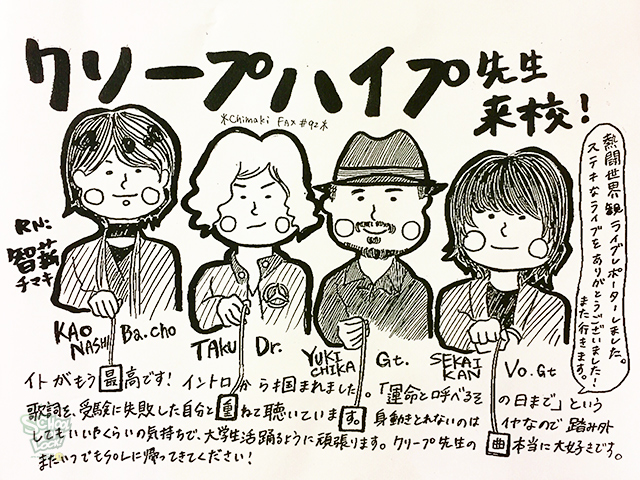 クリープハイプ先生
来校!
*Chimaki FAX #92*
RN:
智薪
チマキ
熱闘世界観ライブレポーターしました。
ステキなライブをありがとうございました!
また行きます。
KAO
NASHI
Ba.cho
TAKU Dr.
YUKI
CHIKA
Gt.
SEKAI
KAN
Vo.Gt
イトがもう最高です! イントロから掴まれました。「運命と呼べるその日まで」という
歌詞を、受験に失敗した自分と重ねて聴いています。身動きとれないのはイヤなので踏み外
してもいいやくらいの気持ちで、大学生活踊るように頑張ります。クリープ先生の曲本当に大好きです。
またいつでもSOLに帰ってきてください!